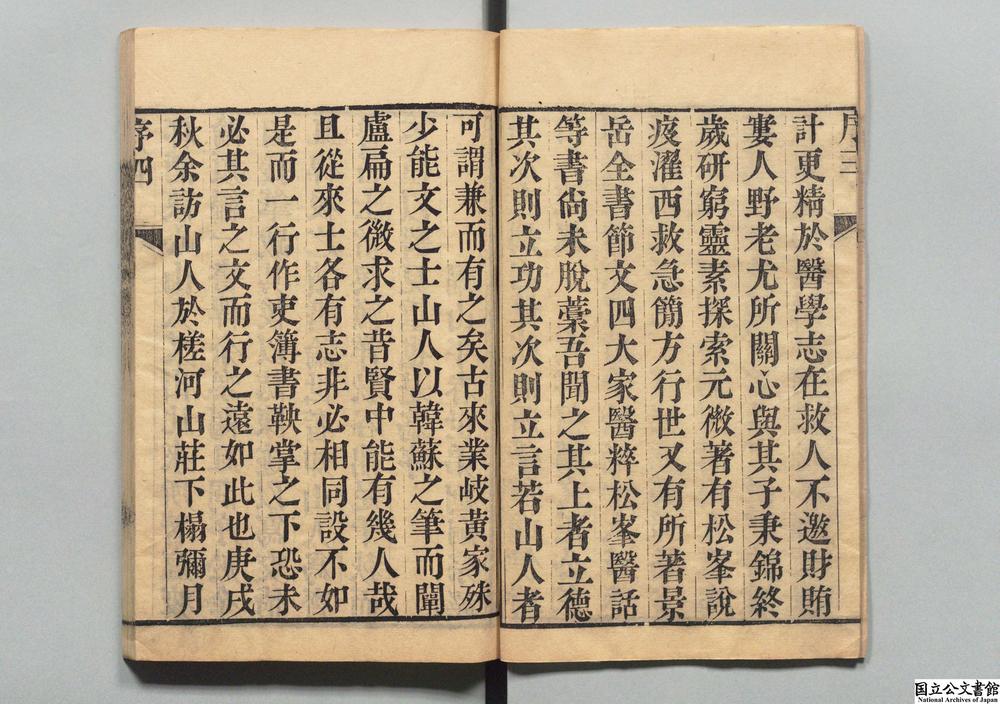 序三
計更精於醫學志在救人不邀財賄
窶人野老尤所關心與其子秉錦終
歲研窮靈素探索元微著有松峯說
疫濯西救急簡方行世又有所著景
岳全書節文四大家醫粹松峯醫話
等書尙未脫藁吾聞之其上者立德
其次則立功其次則立言若山人者
可謂兼而有之矣古來業岐黃家殊
少能文之士山人以韓蘇之筆而闡
盧扁之微求之昔賢中能有幾人哉
且從來士各有志非必相同設不如
是而一行作吏簿書鞅掌之下恐未
必其言之文而行之遠如此也庚戌
秋余訪山人於槎河山莊下榻彌月
序四
国立公文書館
National Archives of Japan